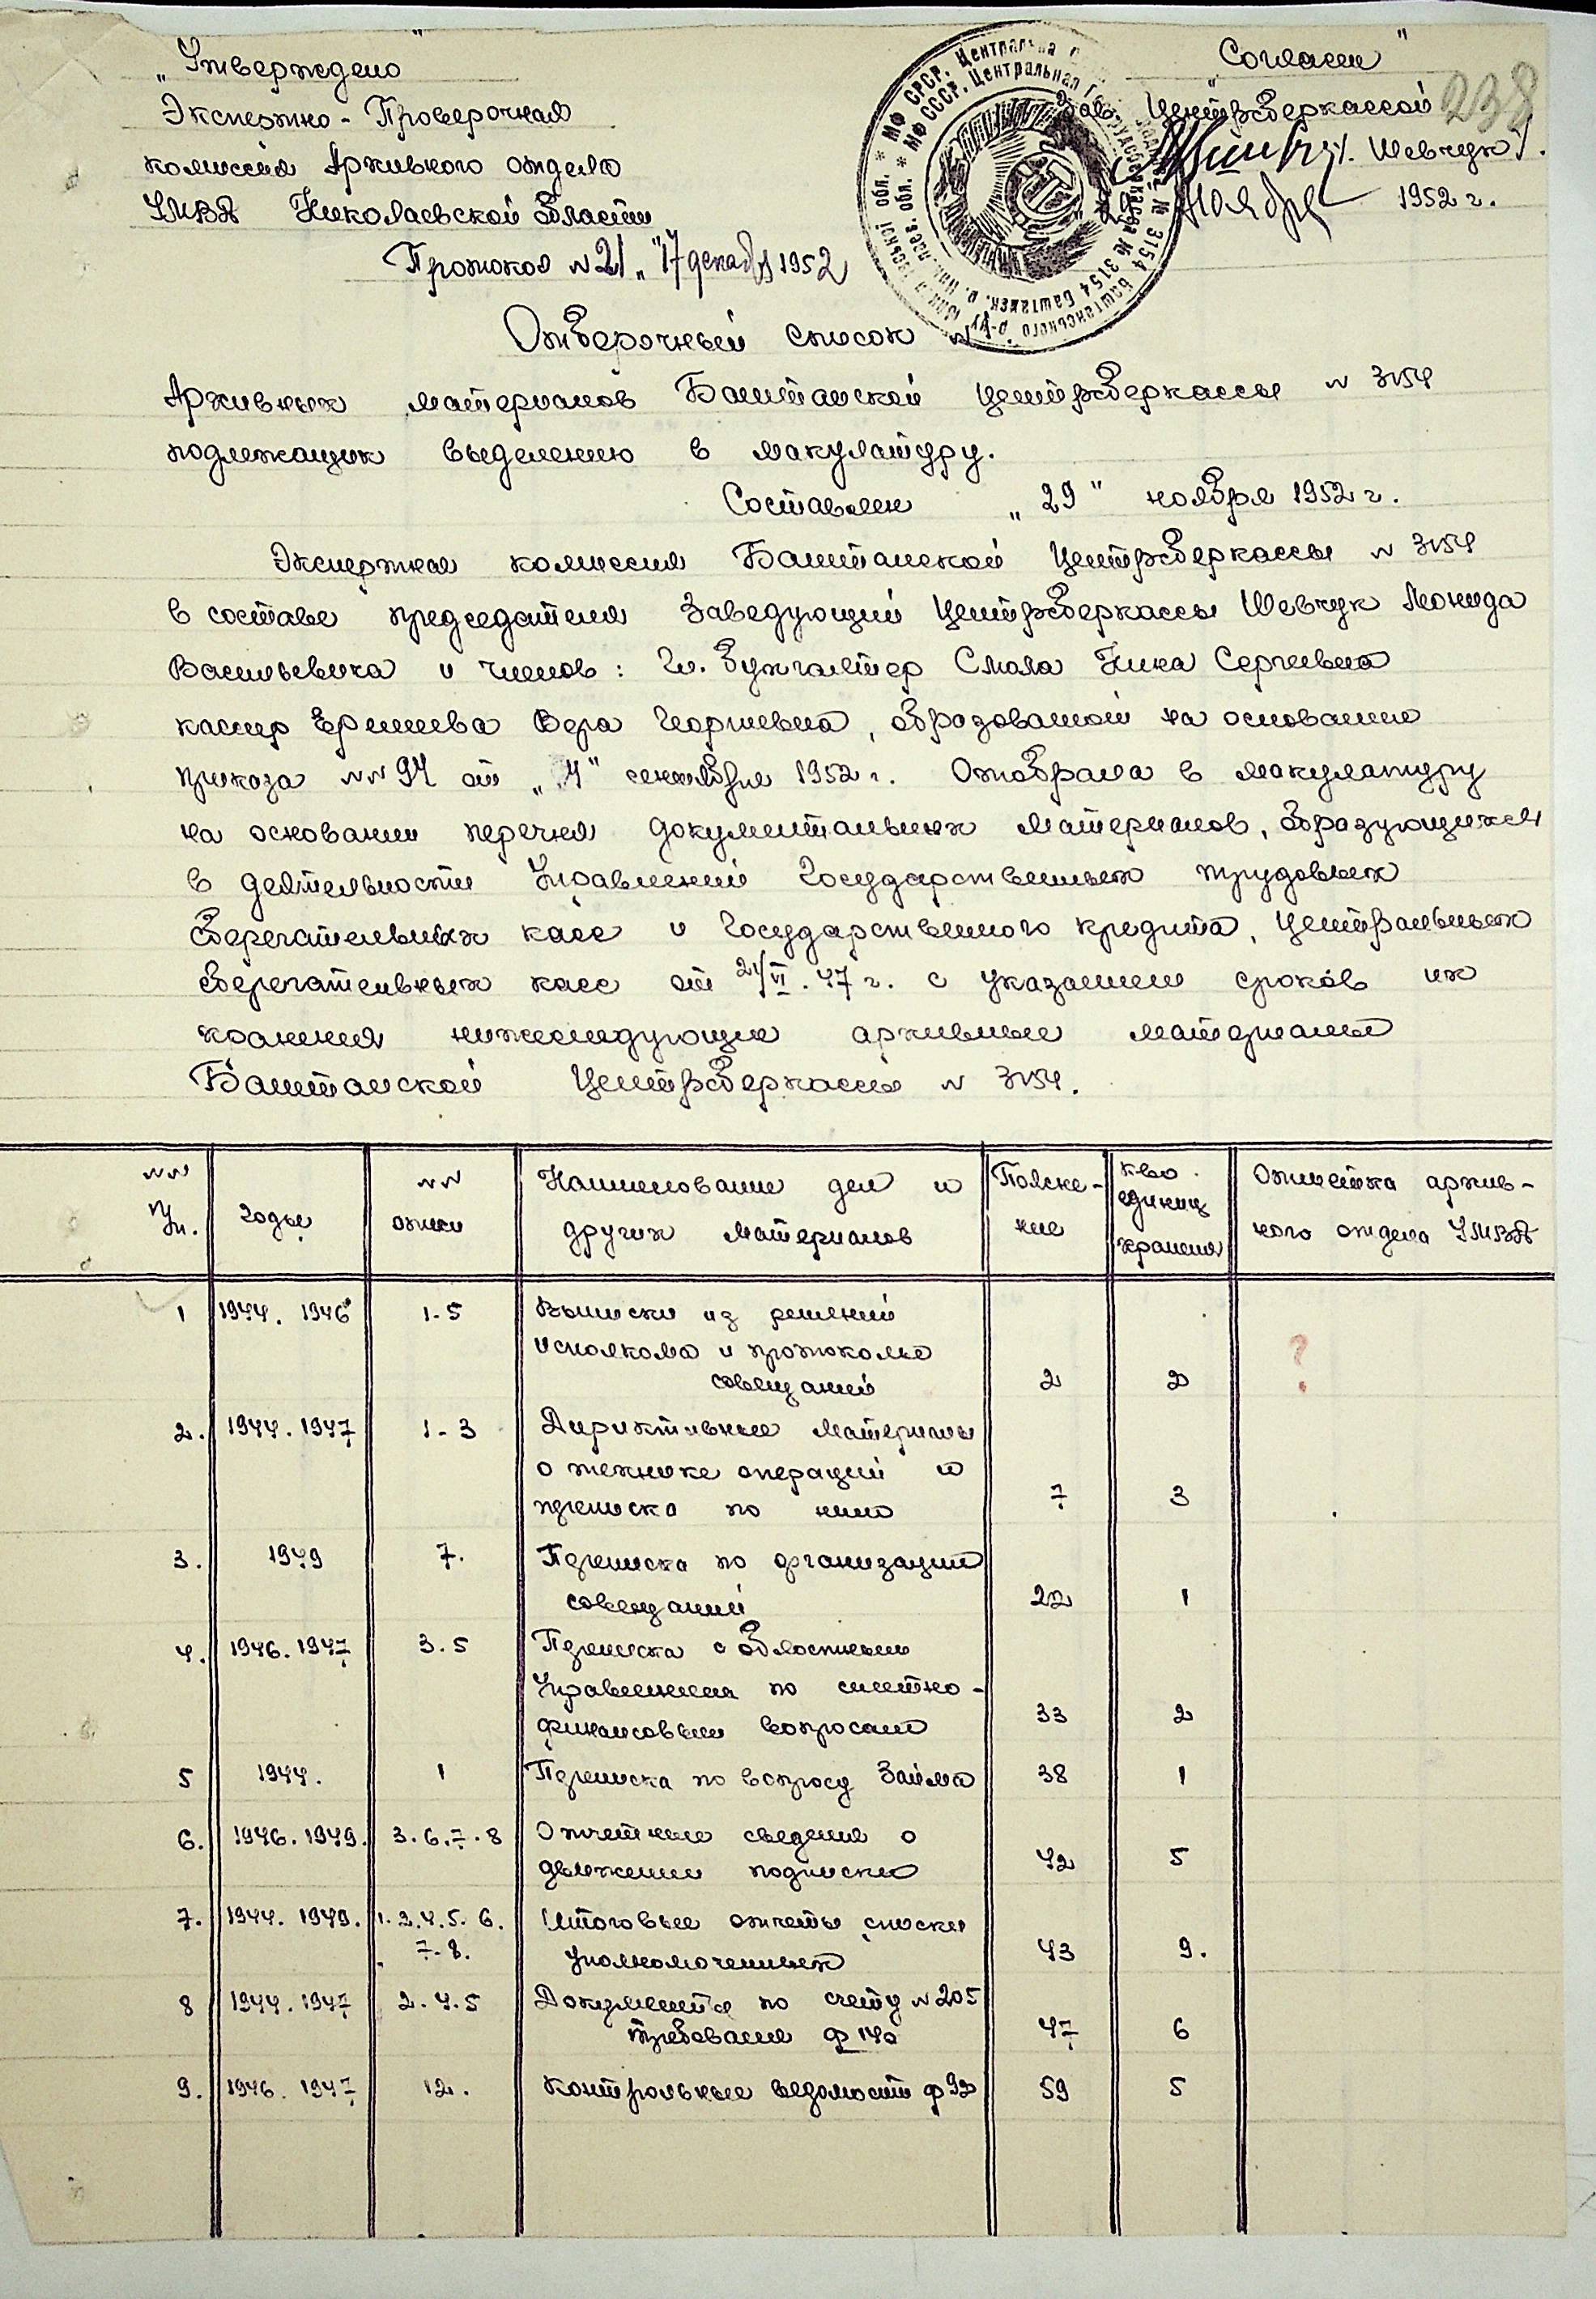 „Утверждено"
Экспертно - Проверочная
комиссия Архивного отдела
УМВД Николаевской области
Протокол №21 „17 декабря 1952
„Согласен"
238
Зав. Центрсберкассой
/. Шевчук /.
ноября 1952 г.
* МФ СРСР. Центральна
* МФ СССР. Центральная
№ 3154 Баштанського р-ну
№ 3154 Баштанск. р.
Отборочный список №
Архивных материалов Баштанской Центрсберкассы № 3154
подлежащих выделению в макулатуру.
Составлен „29" ноября 1952 г.
Экспертная комиссия Баштанской Центрсберкассы № 3154
в составе председателя Заведующий Центрсберкассы Шевчук Леонида
Васильевича и членов: Гл. бухгалтер Смола Нина Сергеевна
кассир Ермиева Вера Георгиевна, образованной на основании
приказа №№ 94 от „4" сентября 1952 г. Отобрала в макулатуру
на основании перечня документальных материалов, образующихся
в деятельности Управлений Государственных трудовых
сберегательных касс и Государственного кредита, Центральных
сберегательных касс от 21/VI. 47 г. с указанием сроков их
хранения нижеследующие архивные материалы
Баштанской Центрсберкассы № 3154.
№№ п/п. | Годы | №№ описи | Наименование дел и других материалов | Пояснение | К-во единиц хранения | Отметка архивного отдела УМВД
1 | 1944. 1946 | 1-5 | Выписки из решений
исполкома и протоколы
совещаний | 2 | 2 | ?
2. | 1944. 1947 | 1-3 | Дириктивные материалы
о технике операций и
переписка по ним | 7 | 3
3. | 1949 | 7. | Переписка по организации
совещаний | 22 | 1
4. | 1946. 1947 | 3. 5 | Переписка с областным
Управлением по сметно-
финансовым вопросам | 33 | 2
5 | 1944. | 1 | Переписка по вопросу Займа | 38 | 1
6. | 1946. 1949. | 3. 6. 7. 8 | Отчетные сведения о
движении подписки | 42 | 5
7. | 1944. 1949. | 1. 2. 4. 5. 6.
7-8. | Итоговые отчеты списки
уполномоченных | 43 | 9.
8 | 1944. 1947 | 2. 4. 5 | Документы по счету № 205
требование ф 14а | 47 | 6
9. | 1946. 1947 | 12. | Контрольные ведомости ф 92 | 59 | 5